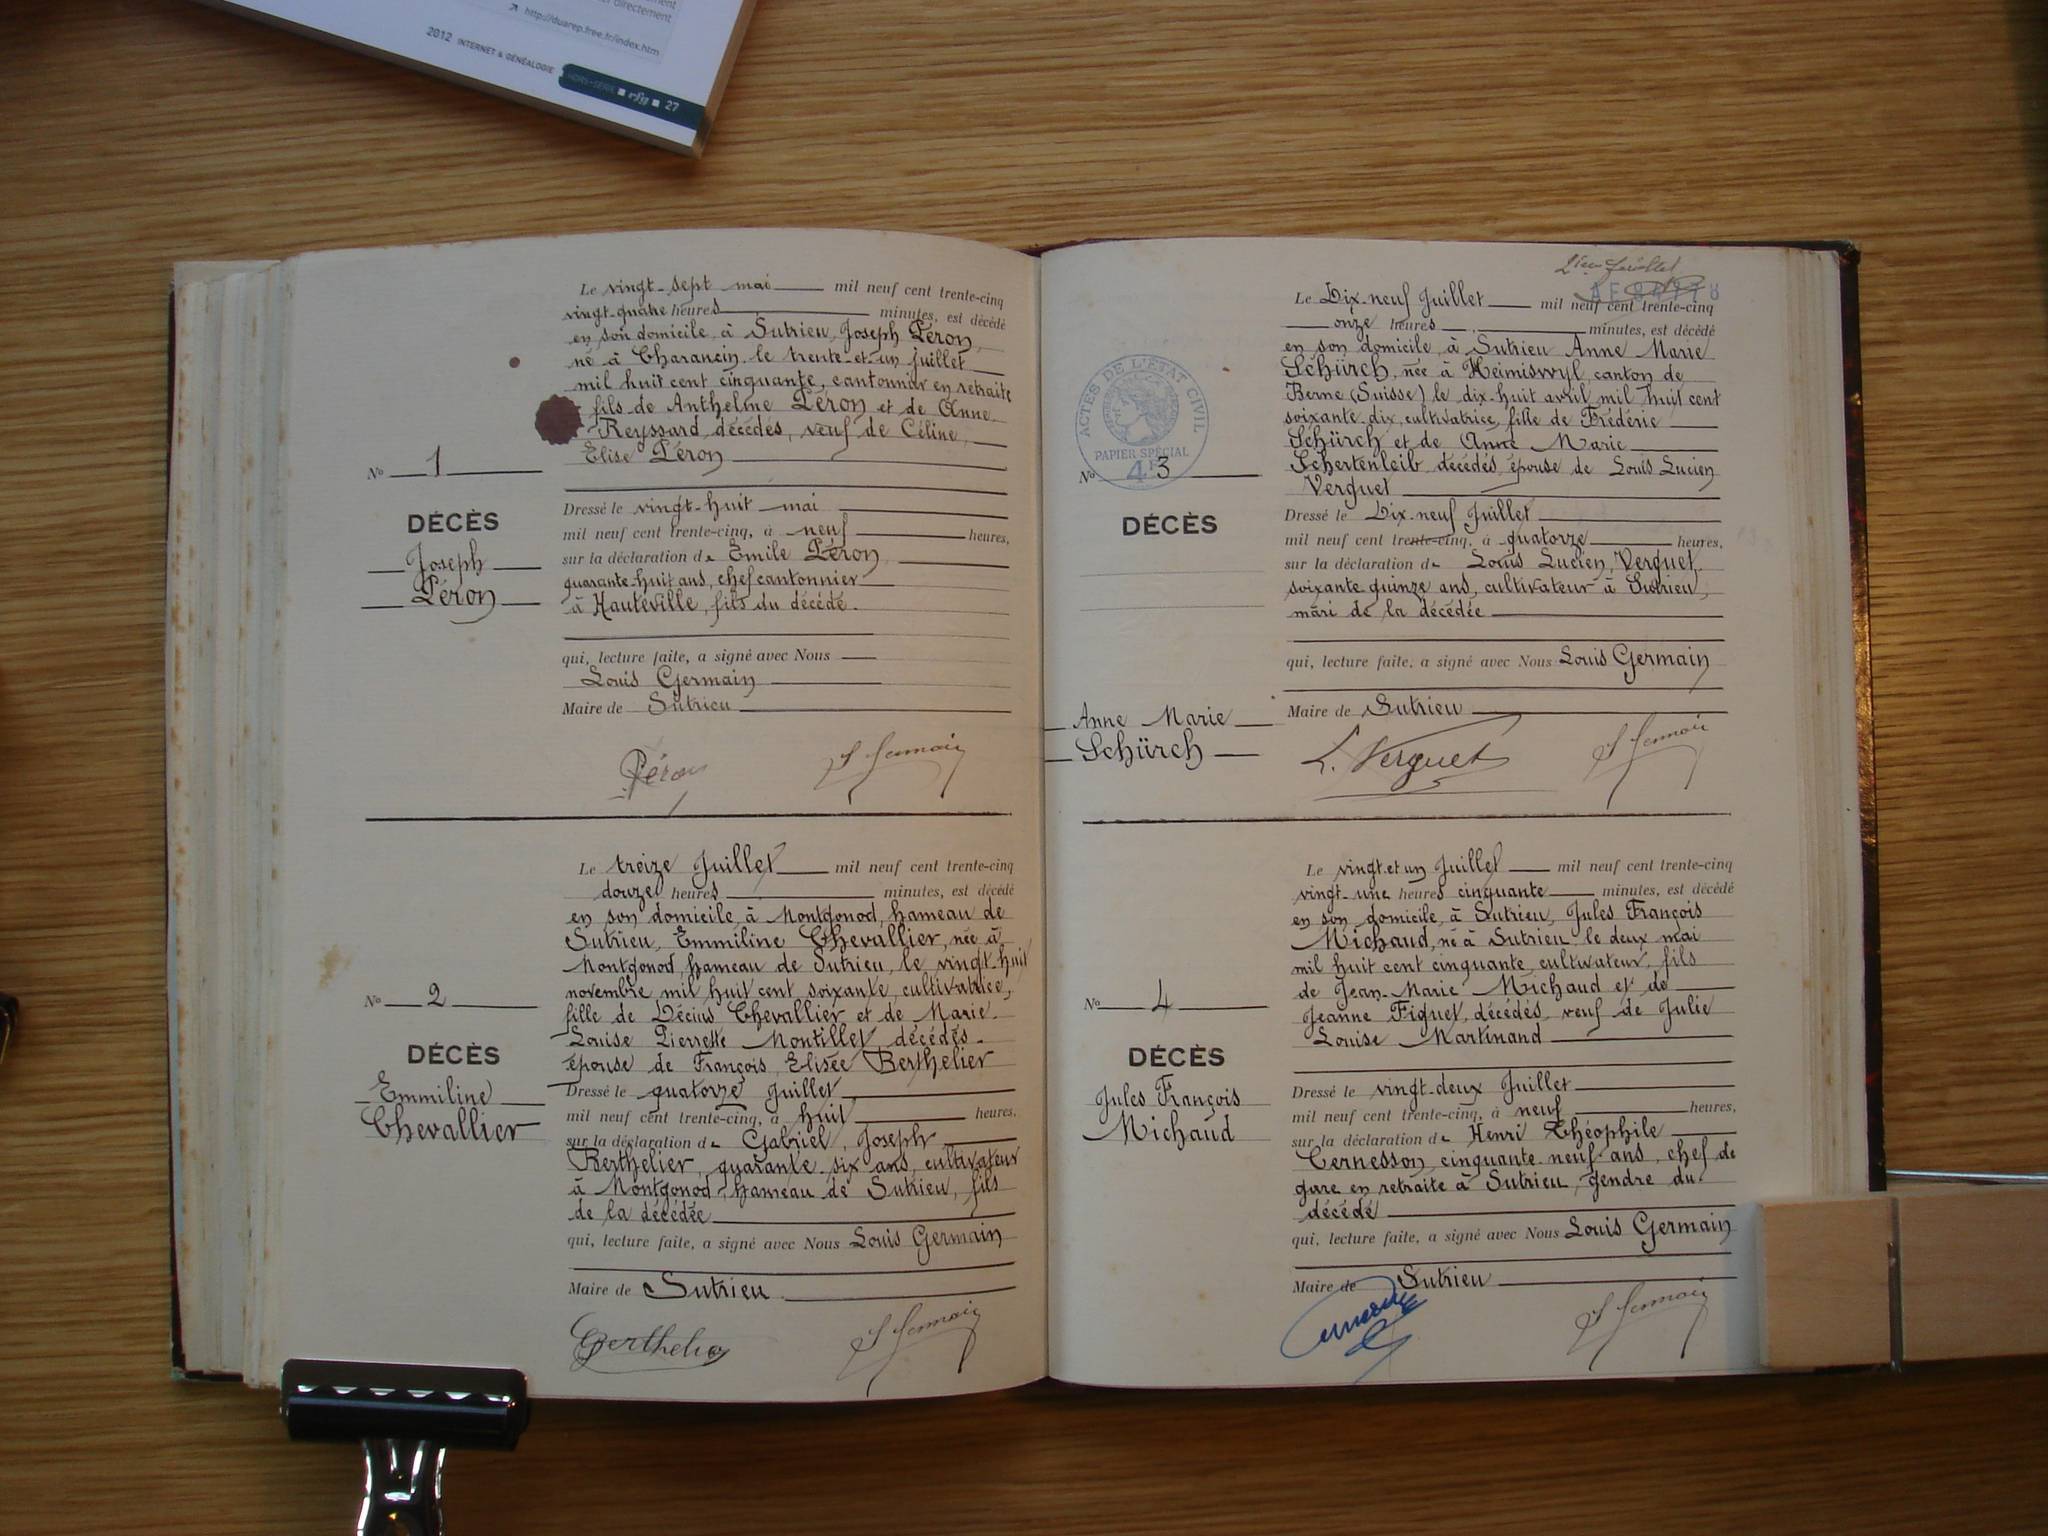 directement
http://duarep.free.fr/index.htm
2012 INTERNET & GÉNÉALOGIE
HORS-SÉRIE rfg 27
Le vingt-sept mai mil neuf cent trente-cinq
vingt-quatre heures minutes, est décédé
en son domicile, à Sutrieu, Joseph Péron,
né à Charancin le trente-et-un juillet
mil huit cent cinquante, cantonnier en retraite
fils de Anthelme Péron et de Anne
Reyssard décédés, veuf de Céline,
Elise Péron
No 1
DÉCÈS
Joseph
Péron
Dressé le vingt-huit mai
mil neuf cent trente-cinq, à neuf heures,
sur la déclaration de Emile Péron,
quarante-huit ans, chef cantonnier
à Hauteville, fils du décédé.
qui, lecture faite, a signé avec Nous
Louis Germain
Maire de Sutrieu
Péron
L Germain
Le treize Juillet mil neuf cent trente-cinq
douze heures minutes, est décédé
en son domicile, à Montgonod, hameau de
Sutrieu, Emmiline Chevallier, née à
Montgonod, hameau de Sutrieu, le vingt-huit
novembre mil huit cent soixante, cultivatrice,
fille de Décius Chevallier et de Marie
Louise Pierrette Montillet, décédés
épouse de François, Elisée Berthelier
No 2
DÉCÈS
Emmiline
Chevallier
Dressé le quatorze Juillet
mil neuf cent trente-cinq, à huit heures.
sur la déclaration de Gabriel, Joseph
Berthelier, quarante-six ans, cultivateur
à Montgonod, hameau de Sutrieu, fils
de la décédée
qui, lecture faite, a signé avec Nous Louis Germain
Maire de Sutrieu
Berthelier
L Germain
2ème feuillet
ACTES DE L'ÉTAT CIVIL
PAPIER SPÉCIAL
4F
Le Dix-neuf Juillet mil neuf cent trente-cinq
onze heures minutes, est décédé
en son domicile, à Sutrieu Anne Marie
Schürch, née à Heimiswyl, canton de
Berne (Suisse) le dix-huit avril mil huit cent
soixante-dix, cultivatrice, fille de Frédéric
Schürch et de Anne Marie
Schertenleib décédés, épouse de Louis Lucien
Verguet
No 3
DÉCÈS
Anne Marie
Schürch
Dressé le Dix-neuf Juillet
mil neuf cent trente-cinq, à quatorze heures,
sur la déclaration de Louis Lucien, Verguet,
soixante-quinze ans, cultivateur à Sutrieu,
mari de la décédée
qui, lecture faite, a signé avec Nous Louis Germain
Maire de Sutrieu
L. Verguet
L Germain
Le vingt et un Juillet mil neuf cent trente-cinq
vingt-une heures cinquante minutes, est décédé
en son domicile, à Sutrieu, Jules François
Michaud, né à Sutrieu le deux mai
mil huit cent cinquante, cultivateur, fils
de Jean-Marie Michaud et de
Jeanne Figuet, décédés, veuf de Julie
Louise Martinand
No 4
DÉCÈS
Jules François
Michaud
Dressé le vingt-deux Juillet
mil neuf cent trente-cinq, à neuf heures,
sur la déclaration de Henri Théophile
Cernesson, cinquante-neuf ans, chef de
gare en retraite à Sutrieu, gendre du
décédé
qui, lecture faite, a signé avec Nous Louis Germain
Maire de Sutrieu
L Germain